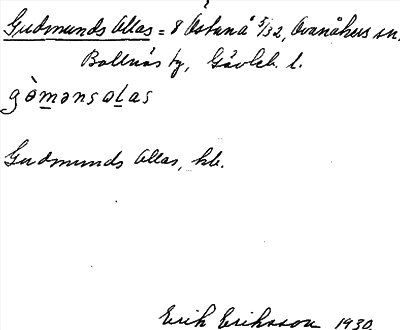 Gudmunds Ollas = 8 Östanå 5/32, Ovanåkers sn,
Bollnäs tg, Gävleb. l.
gə̀mənsoḷas
Gudmunds Ollas, kb.
Erik Eriksson 1930.